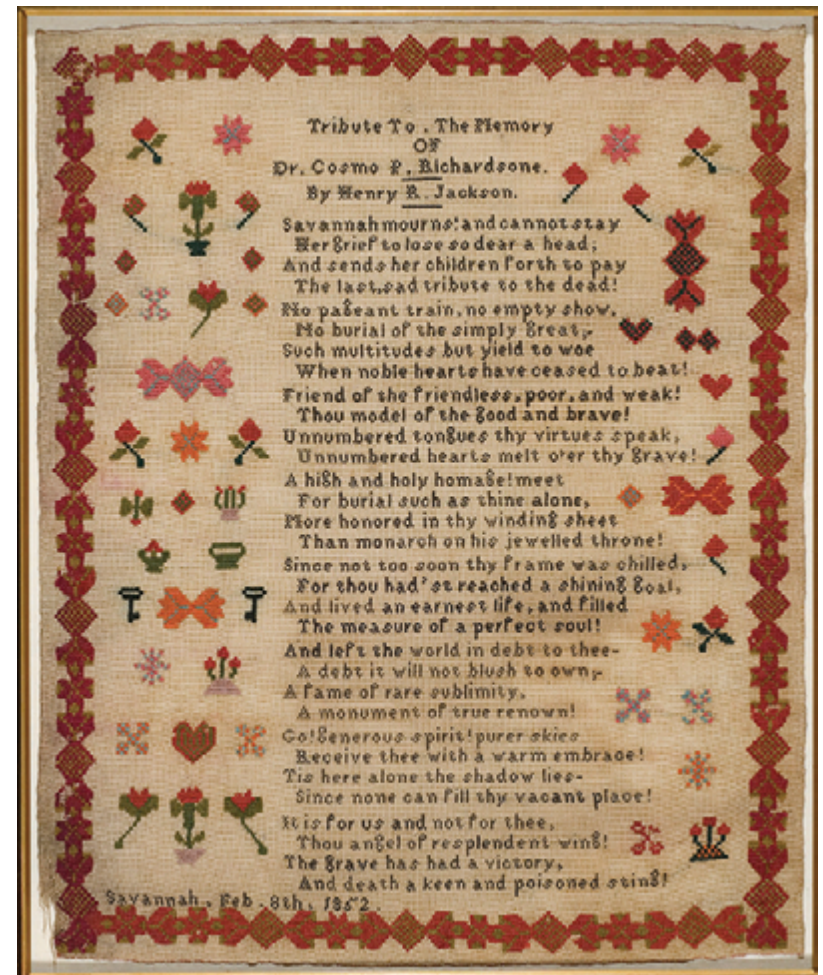 Tribute To . The Memory
OF
Dr. Cosmo P. Richardsone.
By Henry R. Jackson.
Savannah mourns! and cannot stay
Her grief to lose so dear a head;
And sends her children forth to pay
The last, sad tribute to the dead!
No pageant train, no empty show,
No burial of the simply great;-
Such multitudes but yield to woe
When noble hearts have ceased to beat!
Friend of the friendless, poor, and weak!
Thou model of the good and brave!
Unnumbered tongues thy virtues speak,
Unnumbered hearts melt o'er thy grave!
A high and holy homage! meet
For burial such as thine alone,
More honored in thy winding sheet
Than monarch on his jewelled throne!
Since not too soon thy frame was chilled,
For thou had'st reached a shining goal,
And lived an earnest life, and filled
The measure of a perfect soul!
And left the world in debt to thee-
A debt it will not blush to own;-
A fame of rare sublimity,
A monument of true renown!
Go! generous spirit! purer skies
Receive thee with a warm embrace!
Tis here alone the shadow lies-
Since none can fill thy vacant place!
It is for us and not for thee,
Thou angel of resplendent wing!
The grave has had a victory,
And death a keen and poisoned sting!
Savannah. Feb. 8th, 1852.